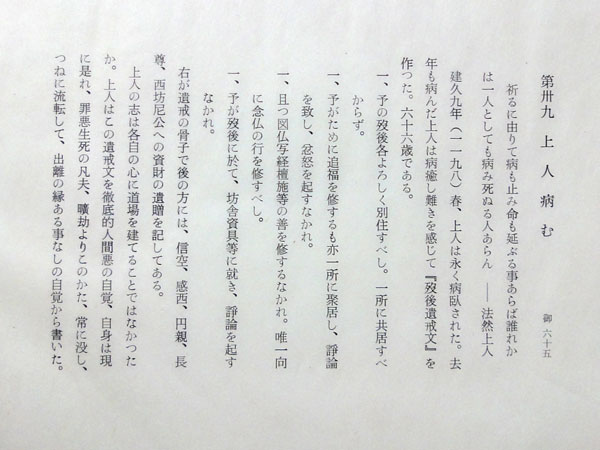 第卅九　上人病む
御六十五
祈るに由りて病も止み命も延ぶる事あらば誰れか
は一人としても病み死ぬる人あらん　――法然上人
建久九年（一一九八）春、上人は永く病臥された。去
年も病んだ上人は病癒し難きを感じて『歿後遺戒文』を
作つた。六十六歳である。
一、予の歿後各よろしく別住すべし。一所に共居すべ
からず。
一、予がために追福を修するも亦一所に聚居し、諍論
を致し、忿怒を起すなかれ。
一、且つ図仏写経檀施等の善を修するなかれ。唯一向
に念仏の行を修すべし。
一、予が歿後に於て、坊舎資具等に就き、諍論を起す
なかれ。
右が遺戒の骨子で後の方には、信空、感西、円親、長
尊、西坊尼公への資財の遺贈を記してある。
上人の志は各自の心に道場を建てることではなかつた
か。上人はこの遺戒文を徹底的人間悪の自覚、自身は現
に是れ、罪悪生死の凡夫、曠劫よりこのかた、常に没し、
つねに流転して、出離の縁ある事なしの自覚から書いた。